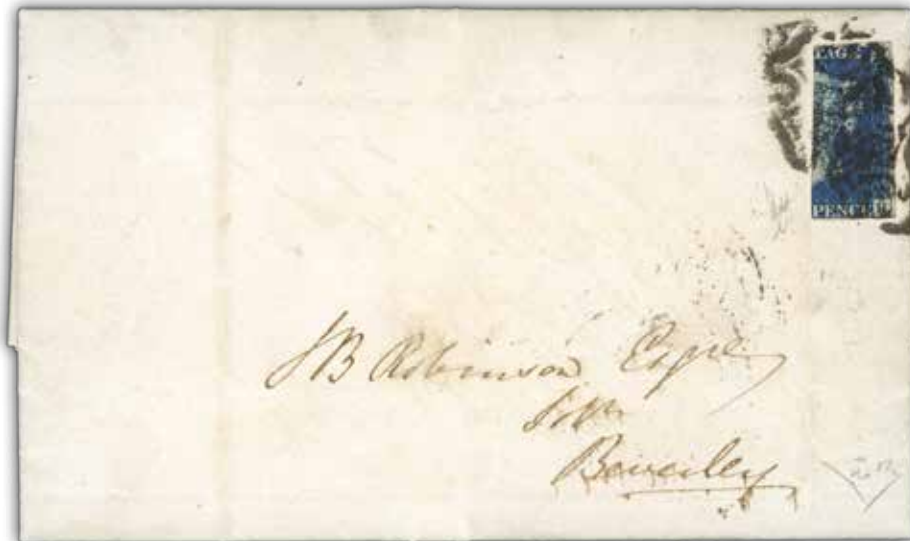 TAG
PENCE
J B Robinson Esqre
Beverley